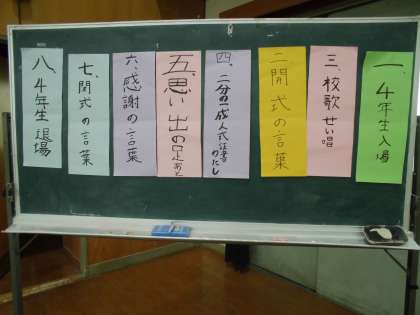 一、4年生入場
三、校歌せい唱
二開式の言葉
四、二分の一成人式証書わたし
五、思い出の足あと
六、感謝の言葉
七、閉式の言葉
八、4年生退場